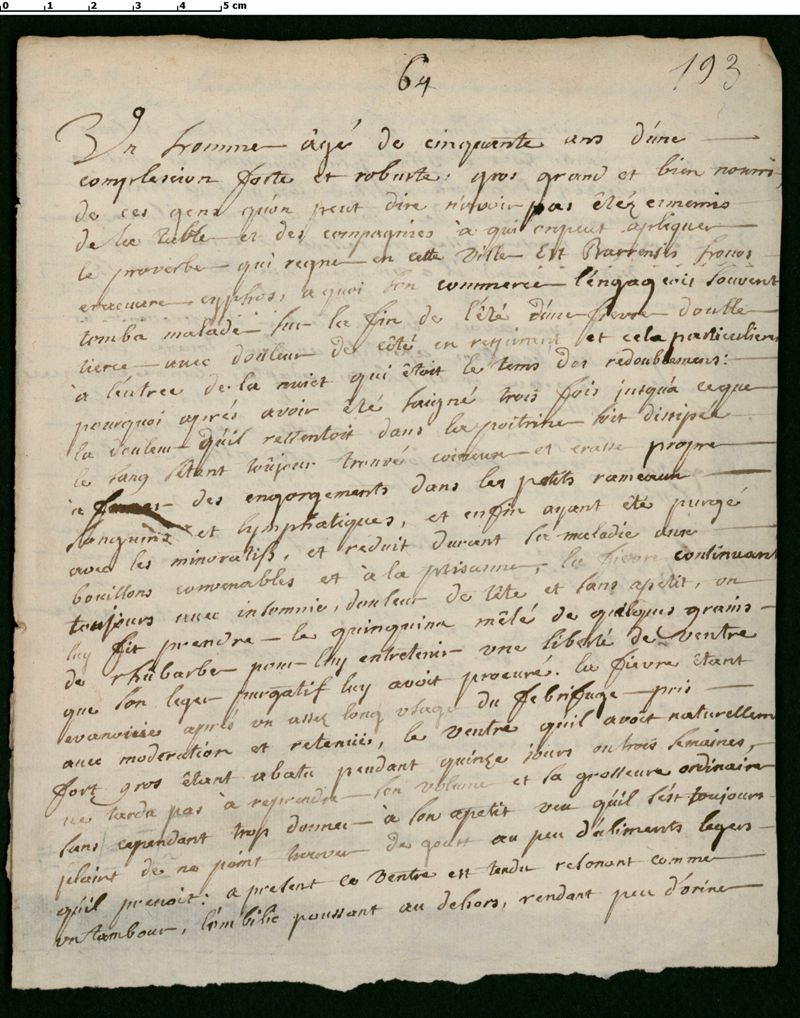 0 1 2 3 4 5 cm
64
193
Un homme âgé de cinquante ans d'une
complexion forte et robuste, gros grand et bien nourri,
de ces gens qu'on peut dire n'avoir pas étéz ennemis
de la table et des compagnies à qui on peut apliquer
le proverbe qui regne en cette ville Est Barrensis
evacuare cyphos, a quoi son commerce l'engageois souvent
tomba malade sur la fin de l'été d'une fievre double
tierce avec douleur de côté et cela particulierem
à l'entree de la nuict qui étoit le tems des redoublemens:
pourquoi aprés avoir été saigné trois fois jusqu'a ceque
la douleur qu'il ressentoit dans la poitrine soit dissipée
le sang s'étant toûjour trouvé coineux et crasse propre
à des engorgements dans les petits rameaux
sanguins et lymphatiques, et enfin ayant été purgé
avec les minoratifs, et reduit durant sa maladie aux
bouillons convenables et à la ptisanne, la fievre continuant
toujours avec insomnie, douleur de tête et sans apetit, on
luy fit prendre le quinquina mêlé de quelques grains
de rhubarbe pour luy entretenir une liberté de ventre
que son leger purgatif luy avoit procuré. la fievre étant
evanouie aprés un assez long usage du febrifuge pris
avec moderation et retenuës, le ventre qu'il avoit naturellem
fort gros étant abatu pendant quinze jours ou trois semaines,
ne tarda pas à reprendre son volume et sa grosseure ordinaire
sans cependant trop donner à son apetit veu qu'il s'est toujours
plaint de ne point trouver de goust au peu d'aliments legers
qu'il prenoit: a present ce ventre est tendu resonant comme
un tambour, l'ombilic poussant au dehors, rendant peu d'orine